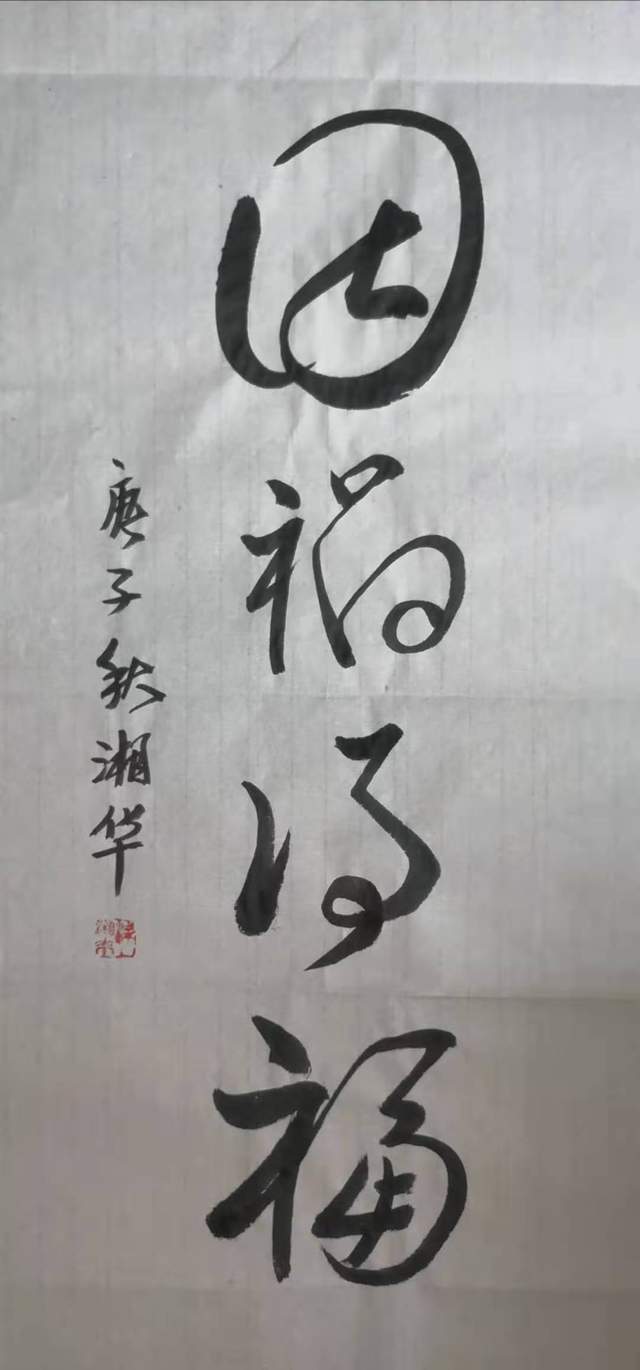 因祸得福
庚子秋湘华